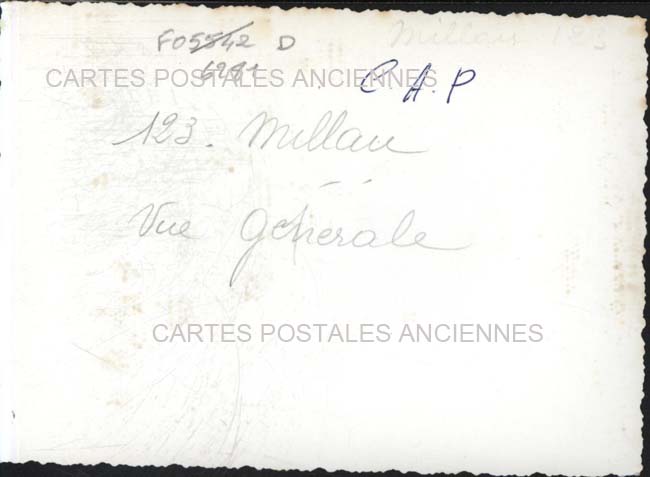 F05542 D
Millau 123
6281
CARTES POSTALES ANCIENNES
C A.P
123. Millau
Vue Générale
CARTES POSTALES ANCIENNES